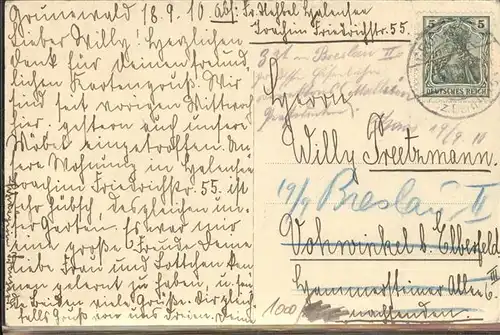 Grunewald 18.9.10 Abs: Fr. Halensee
Joachim Friedrichstr. 55.
Lieber Willy! Herzlichen
Dank für Deinen freund-
lichen Kartengruß. Wir
sind seit vorigen Mittwoch
hier. gestern auch unsere
Möbel eingetroffen. Un-
sere Wohnung in Halensee
Joachim Friedrichstr. 55. ist
sehr hübsch, desgleichen un-
ser Garten. Es war für
eine große Freude Deine
liebe Frau und Lottchen ken-
nen gelernt zu haben, u. sen-
den beiden viele Grüße. Dir gleich-
falls Gruß von uns Drein. Deine
5 5
DEUTSCHES REICH
Breslau II
Herrn
Willy Preetzmann.
19/9 Breslau II
Vohwinkel b. Elberfeld
Hammersteiner Allee 6 III
nachsenden.
1000